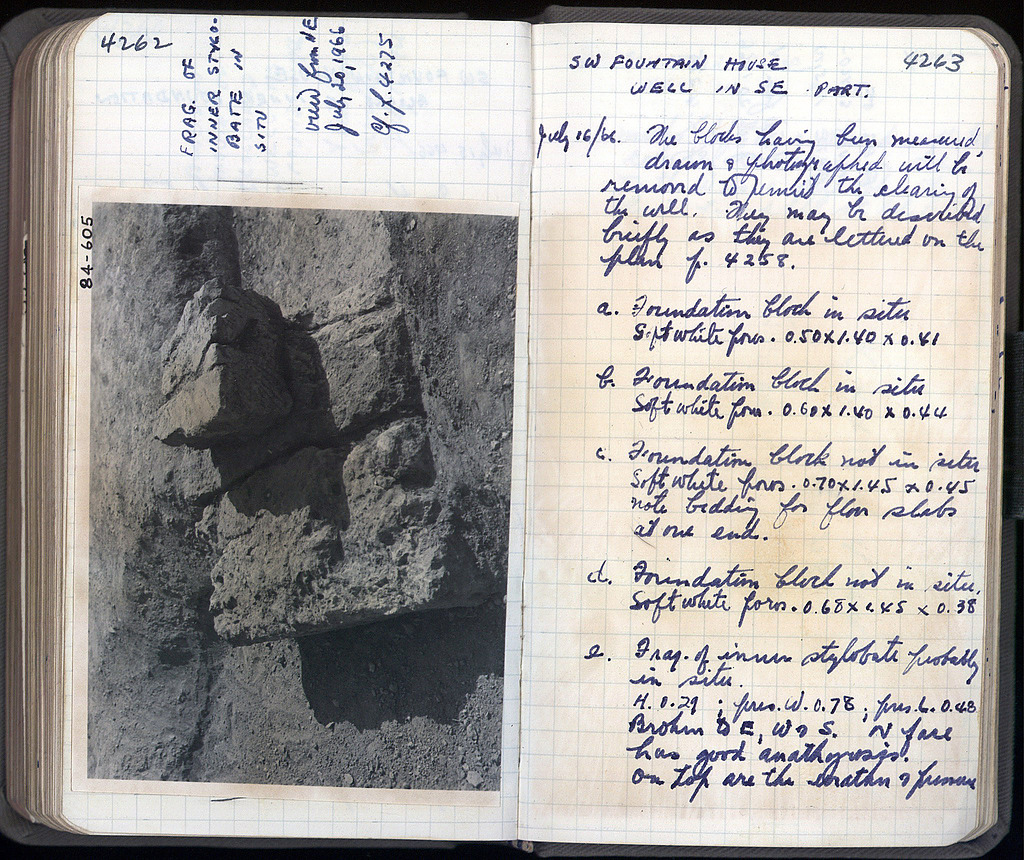 4262
FRAG. OF
INNER STYLO-
BATE IN
SITU
view from NE
July 20, 1966
Cf. p. 4275
84-605
4263
SW FOUNTAIN HOUSE
WELL IN SE PART.
July 16/66. The blocks having been measured,
drawn & photographed will be
removed to permit the clearing of
the well. They may be described
briefly as they are lettered on the
plan p. 4258.
a. Foundation block in situ
Soft white poros. 0.50 x 1.40 x 0.41
b. Foundation block in situ
Soft white poros. 0.60 x 1.40 x 0.44
c. Foundation block not in situ
Soft white poros. 0.70 x 1.45 x 0.45
note bedding for floor slabs
at one end.
d. Foundation block not in situ.
Soft white poros. 0.68 x 1.45 x 0.38
e. Frag. of inner stylobate probably
in situ.
H. 0.29 ; pres. W. 0.78 ; pres. L. 0.48
Broken to E, W & S. N face
has good anathyrosis.
On top are the